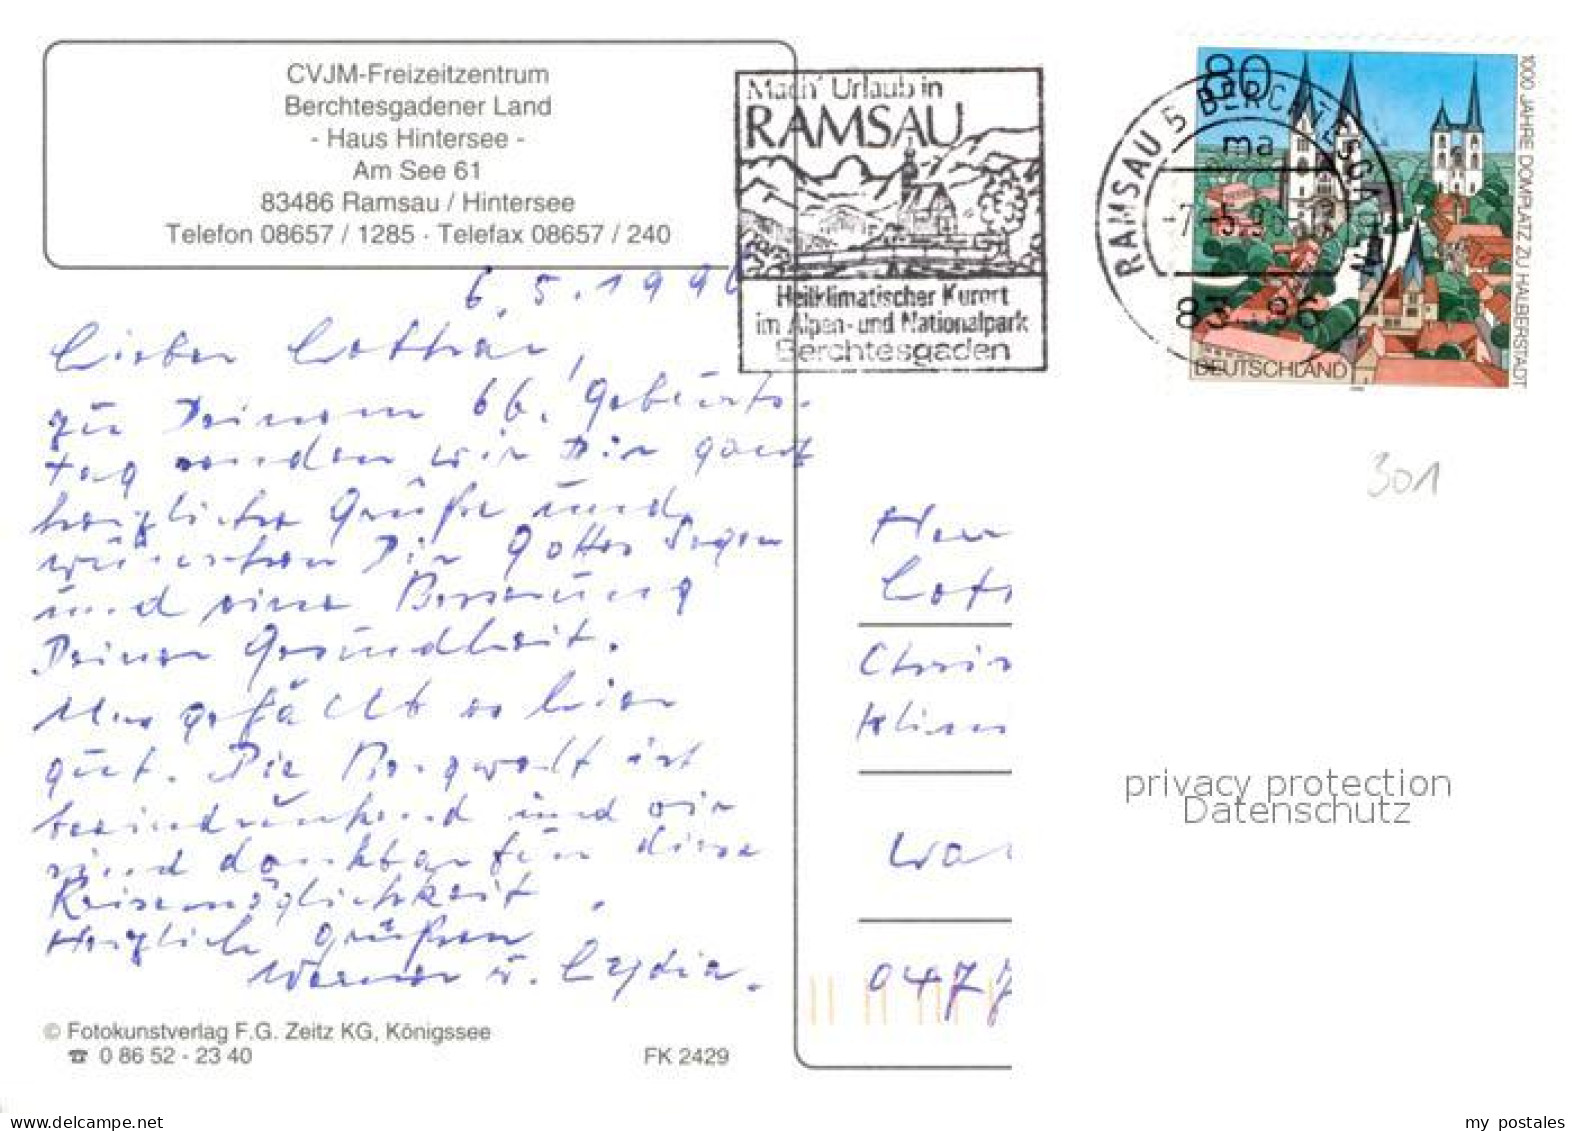 CVJM-Freizeitzentrum
Berchtesgadener Land
- Haus Hintersee -
Am See 61
83486 Ramsau / Hintersee
Telefon 08657 / 1285 · Telefax 08657 / 240
6.5.1996
Lieber Lothar,
zu Deinem 66. Geburts-
tag senden wir Dir ganz
herzliche Grüße und
wünschen Dir Gottes Segen
und eine Besserung
Deiner Gesundheit.
Uns gefällt es hier
gut. Die Bergwelt ist
beeindruckend und wir
sind dankbar für diese
Reisemöglichkeit.
Herzlich grüßen
Werner u. Lydia.
© Fotokunstverlag F.G. Zeitz KG, Königssee
☎ 0 86 52 - 23 40
FK 2429
Mach' Urlaub in
RAMSAU
Heilklimatischer Kurort
im Alpen- und Nationalpark
Berchtesgaden
RAMSAU 5 BERCHTESGA
ma
-7.-5.96
80
1000 JAHRE DOMPLATZ ZU HALBERSTADT
DEUTSCHLAND
301
Herr
Lot
Chris
Klin
Wa
0477
privacy protection
Datenschutz
www.delcampe.net
my postales